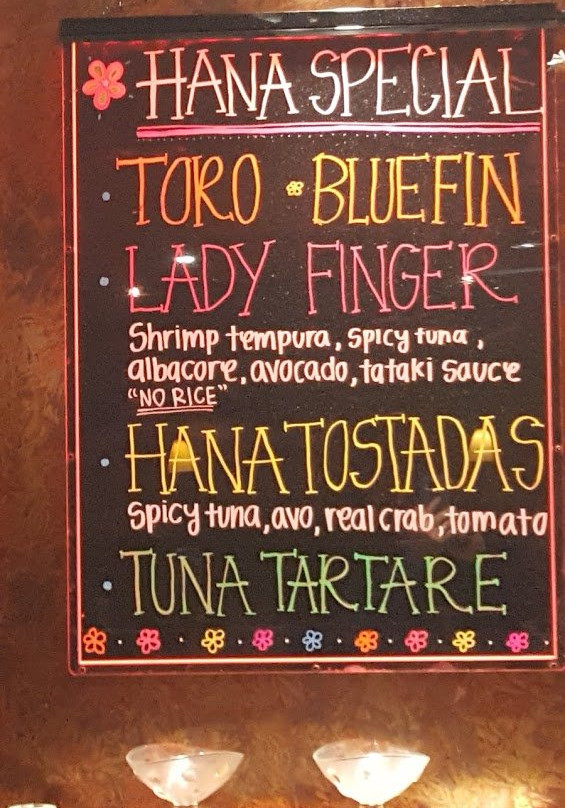 HANA SPECIAL
TORO BLUEFIN
LADY FINGER
Shrimp tempura, spicy tuna,
albacore, avocado, tataki sauce
"NO RICE"
HANA TOSTADAS
Spicy tuna, avo, real crab, tomato
TUNA TARTARE